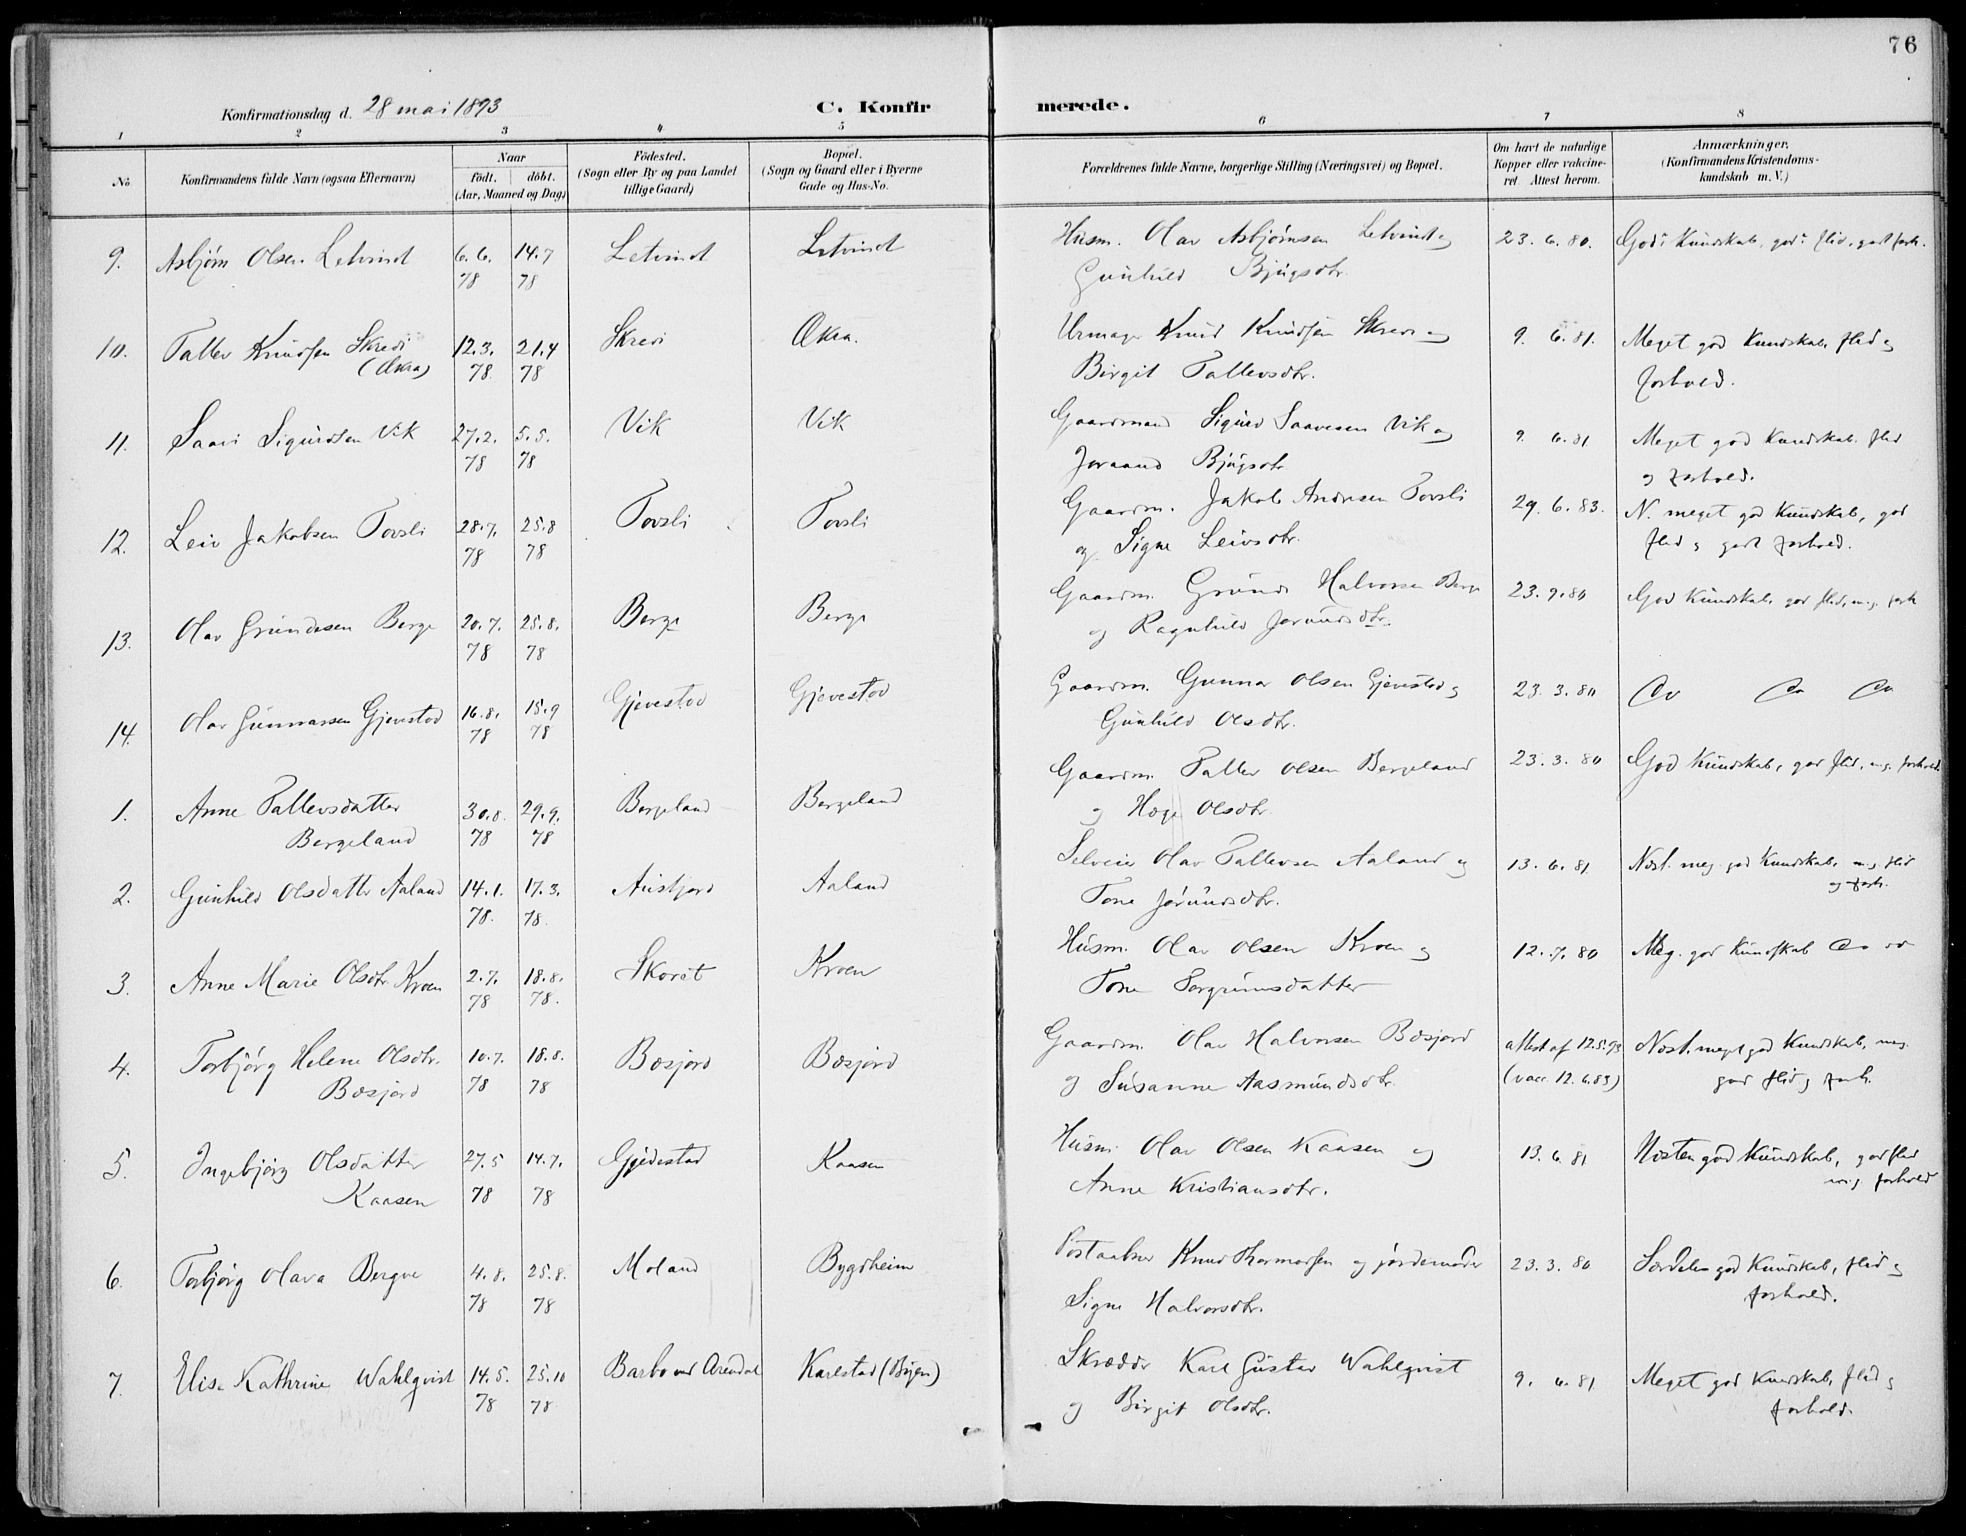 76
Konfirmationsdag d. 28 mai 1893
C. Konfirmerede.
1 2 3 4 5 6 7 8
No
Konfirmandens fulde Navn (ogsaa Efternavn)
Naar
födt. döbt.
(Aar, Maaned og Dag)
Födested.
(Sogn eller By og paa Landet
tillige Gaard)
Bopæl.
(Sogn og Gaard eller i Byerne
Gade og Hus-No.
Forældrenes fulde Navne, borgerlige Stilling (Næringsvei) og Bopæl.
Om havt de naturlige
Kopper eller vakcine-
ret. Attest herom.
Anmærkninger.
(Konfirmandens Kristendoms-
kundskab m. V.)
9. Asbjørn Olsen Letvindt 6.6. 14.7 Letvindt Letvindt Husm. Olav Asbjørnsen Letvindt og 23.6.80. God i Kundskab, god i flid, godt forh.
78 78 Gunhild Bjugsdtr.
10. Tallev Knudsen Skredi 12.3. 21.4 Skredi Økra. Urmager Knud Knudsen Skredi og 9. 6.81. Meget god Kundskab, flid og
(Økra) 78. 78 Birgit Tallevsdtr. forhold.
11. Saavi Sigurdsen Vik 27.2. 5.5. Vik Vik Gaardmand Sigurd Saavesen Vik og 9. 6.81 Meget god Kundskab. flid
78 78 Joraand Bjugsdtr og forhold.
12. Leiv Jakobsen Tovsli 28.7. 25.8 Tovsli Tovsli Gaardm. Jakob Andresen Tovsli 29.6.83. N. meget god Kundskab, god
78 78 og Signe Leivsdtr. flid og godt forhold.
13. Olav Grundesen Berge 20.7. 25.8. Berge Berge Gaardm. Grunde Halvorsen Berge 23.9.80 God Kundskab, god flid, m.g. forh
78 78 og Ragnhild Jorundsdtr.
14. Olav Gunnarsen Gjevestad 16.8. 15.9 Gjevestad Gjevestad Gaardm. Gunnar Olsen Gjevestad og 23.3.80 Do Do Do
78 78 Gunhild Olsdtr.
1. Anne Tallevsdatter 30.8. 29.9. Bergeland Bergeland Gaardm. Tallev Olsen Bergeland 23.3.80 God Kundskab, god flid, m.g. forhold.
Bergeland 78 78 og Hæge Olsdtr
2. Gunhild Olsdatter Aaland 14.1. 17.3. Austjord Aaland Selveier Olav Tallevsen Aaland og 13.6.81 Næst. meg. god Kundskab, m.g. flid
78. 78. Tone Jørundsdtr. og forh.
3. Anne Marie Olsdtr Kroen 2.7. 18.8. Skoret Kroen Husm. Olav Olsen Kroen og 12.7.80 Meg. god Kundskab Do do
78 78. Tone Torgrimsdatter
4. Torbjörg Helene Olsdtr. 10.7. 18.8. Bøsjord Bøsjord Gaardm. Olav Halvorsen Bøsjord attest af 12.5.93 Næst. meget god Kundskab, meg.
Bøsjord 78 78 og Susanne Aasmundsdtr. (vacc. 12.6.83) god flid og forh.
5. Ingebjörg Olsdatter 27.5 14.7. Gjedestad Kaasen Husm. Olav Olsen Kaasen og 13.6.81 Næsten god Kundskab, god flid
Kaasen 78 78 Anne Kristiansdtr. m.g. forhold
6. Torbjörg Olava Bergve 4.8. 25.8. Moland Bygdheim Postaabner Knud Thormodsen og jordemoder 23.3.80 Særdeles god Kundskab, flid og
78 78 Signe Halvorsdtr. forhold.
7. Elise Kathrine Wahlqvist 14.5. 25.10 Barbo ved Arendal Karlstad (Bøen) Skrædder Karl Gustav Wahlqvist 9. 6.81 Meget god Kundskab, flid og
78 78 og Birgit Olsdtr. forhold.